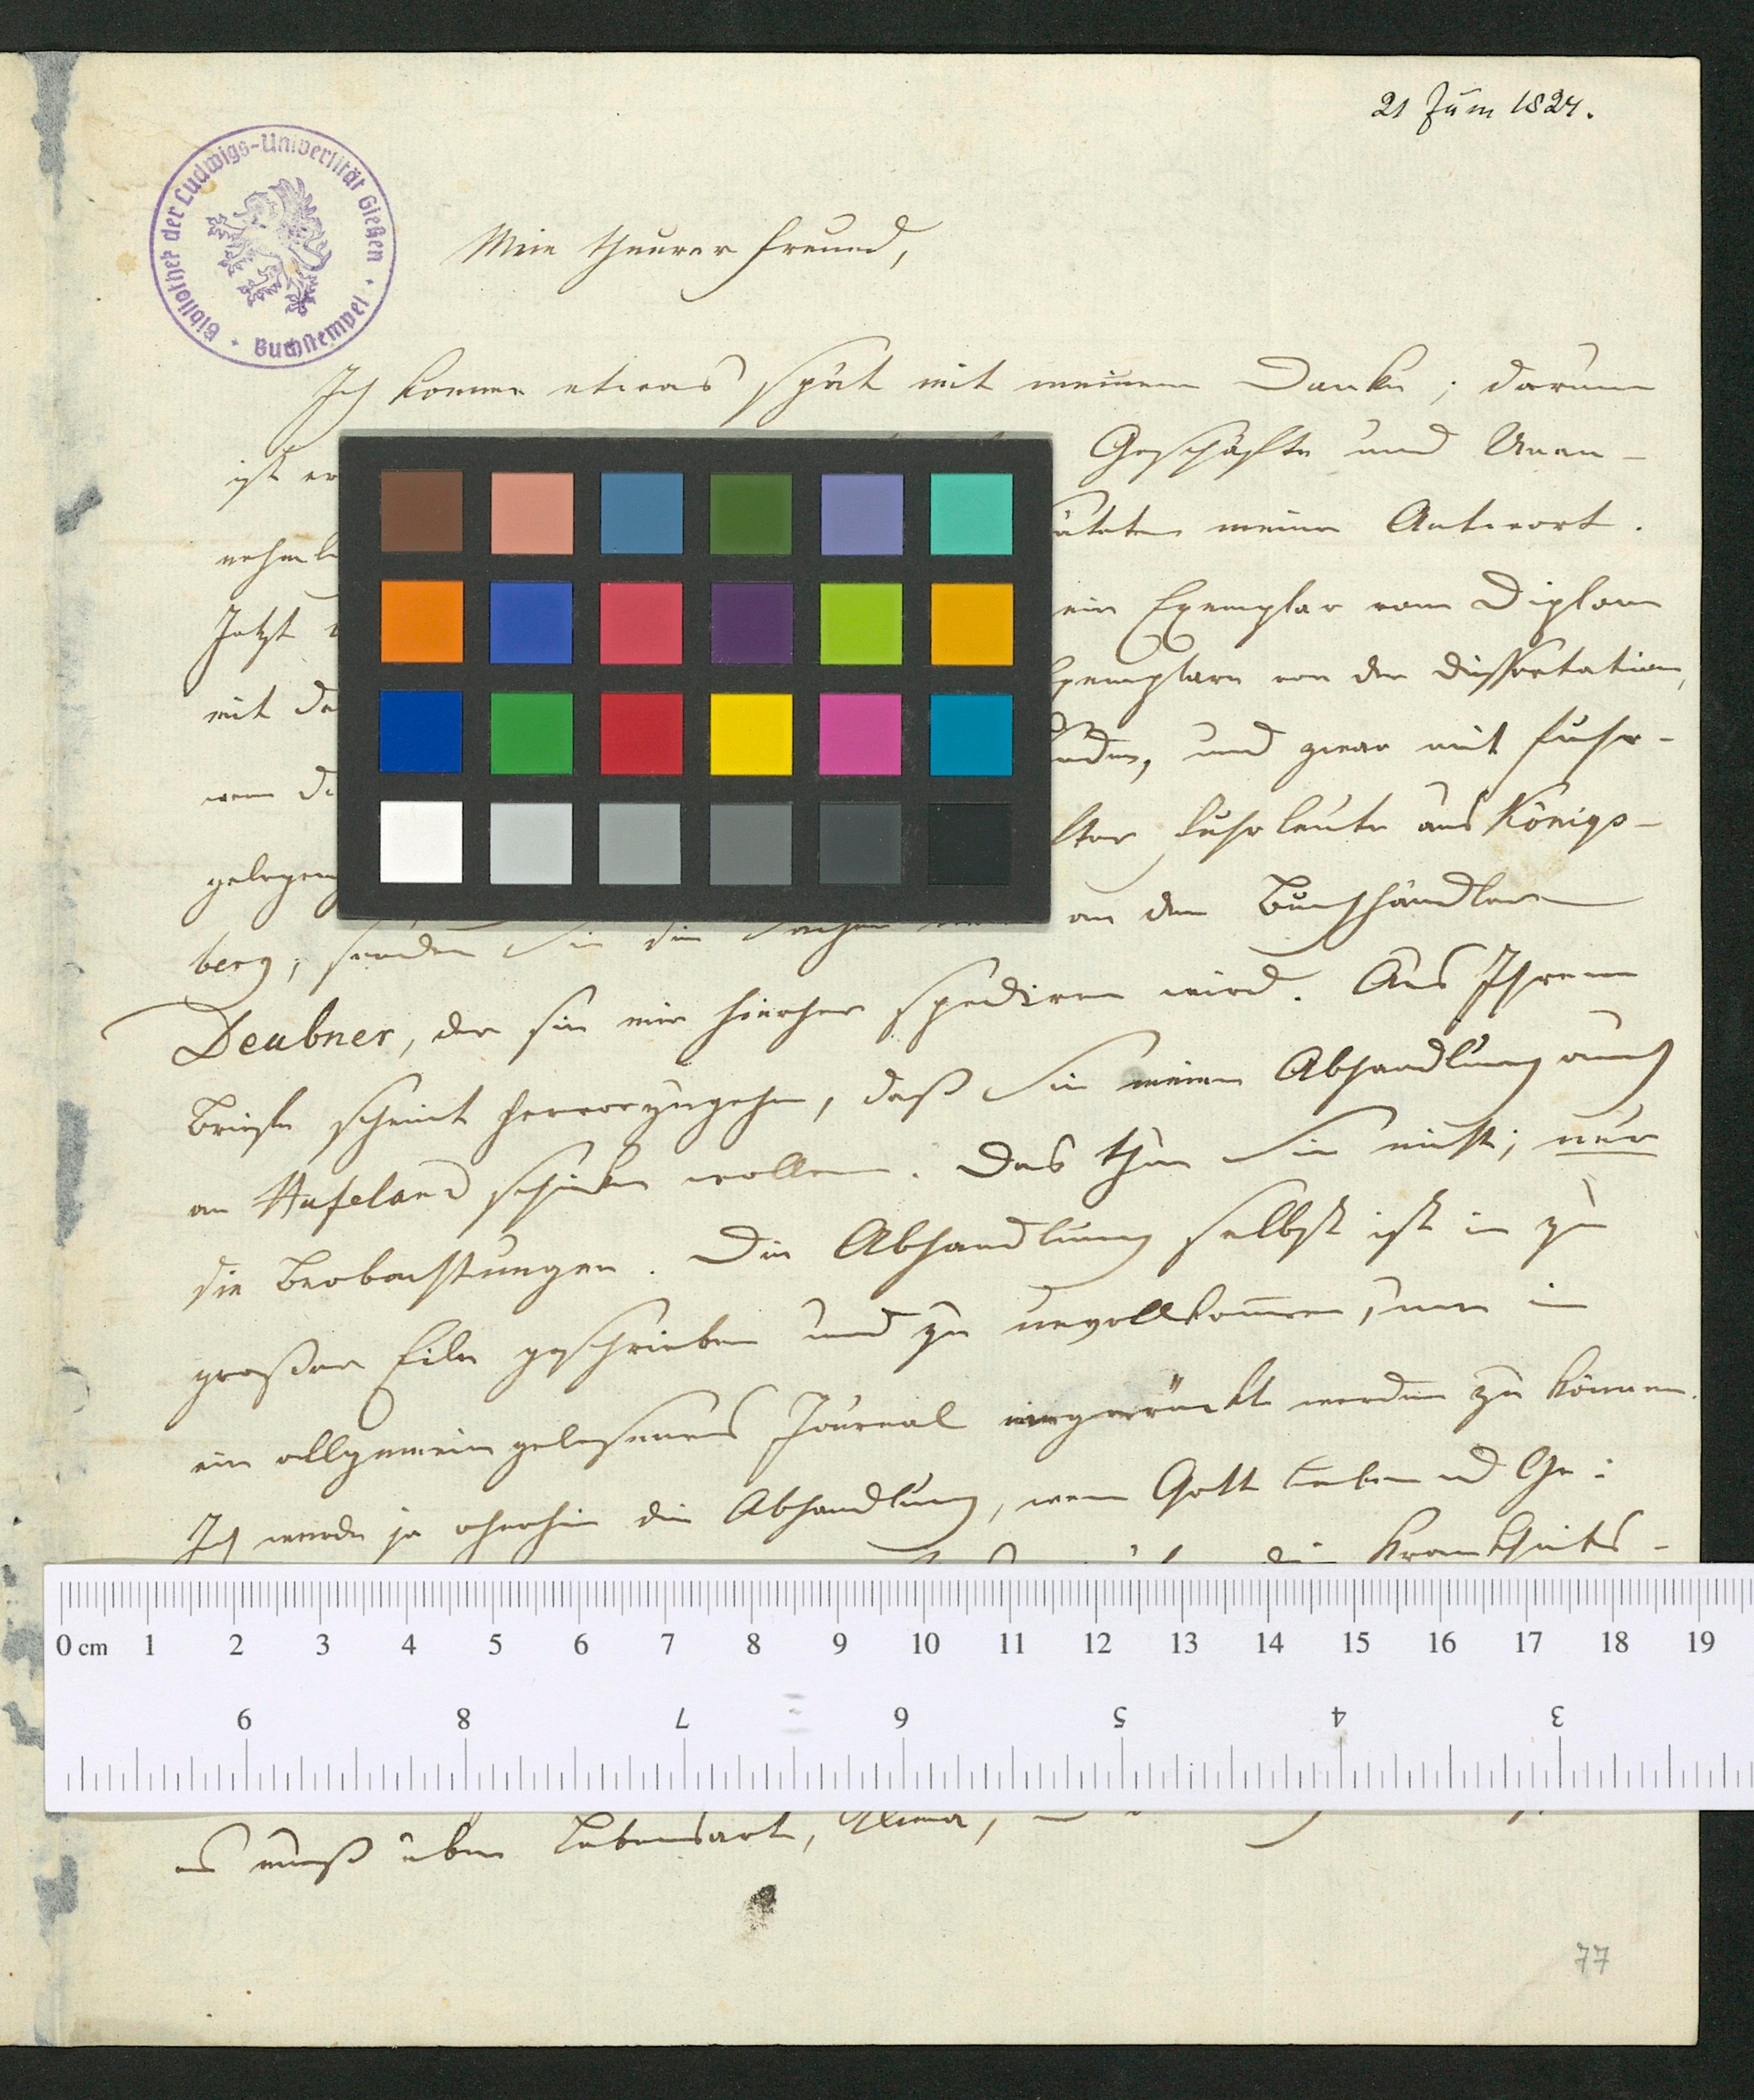 21 Juni 1824.
Bibliothek der Ludwigs-Universität Gießen · Buchstempel ·
Mein theurer Freund,
Ich komme etwas spät mit meinem Danke; darum
ist er Geschäfte und Unan-
nehmli äteten meine Antwort.
Jetzt ein Exemplar vom Diplom
mit de Exemplare von der Dissertation,
wenn di und zwar mit Fuhr-
gelegen Fuhrleute aus Königs-
berg, senden Sie die an den Buchhändler
Deubner, der sie mir hierher spediren wird. Aus Ihrem
Briefe scheint hervorzugehen, daß Sie meine Abhandlung auch
an Hufeland schicken wollen. Das thun Sie nicht; nur
die Beobachtungen. Die Abhandlung selbst ist in zu
großer Eile geschrieben und zu unvollkommen, um in
ein allgemein gelesenes Journal eingerückt werden zu können.
Ich werde ja ohnehin die Abhandlung, wenn Gott Leben und Ge:
die Krankheits-
0 cm 1 2 3 4 5 6 7 8 9 10 11 12 13 14 15 16 17 18 19
9 8 7 6 5 4 3
es muß über Lebensart, Clima,
77